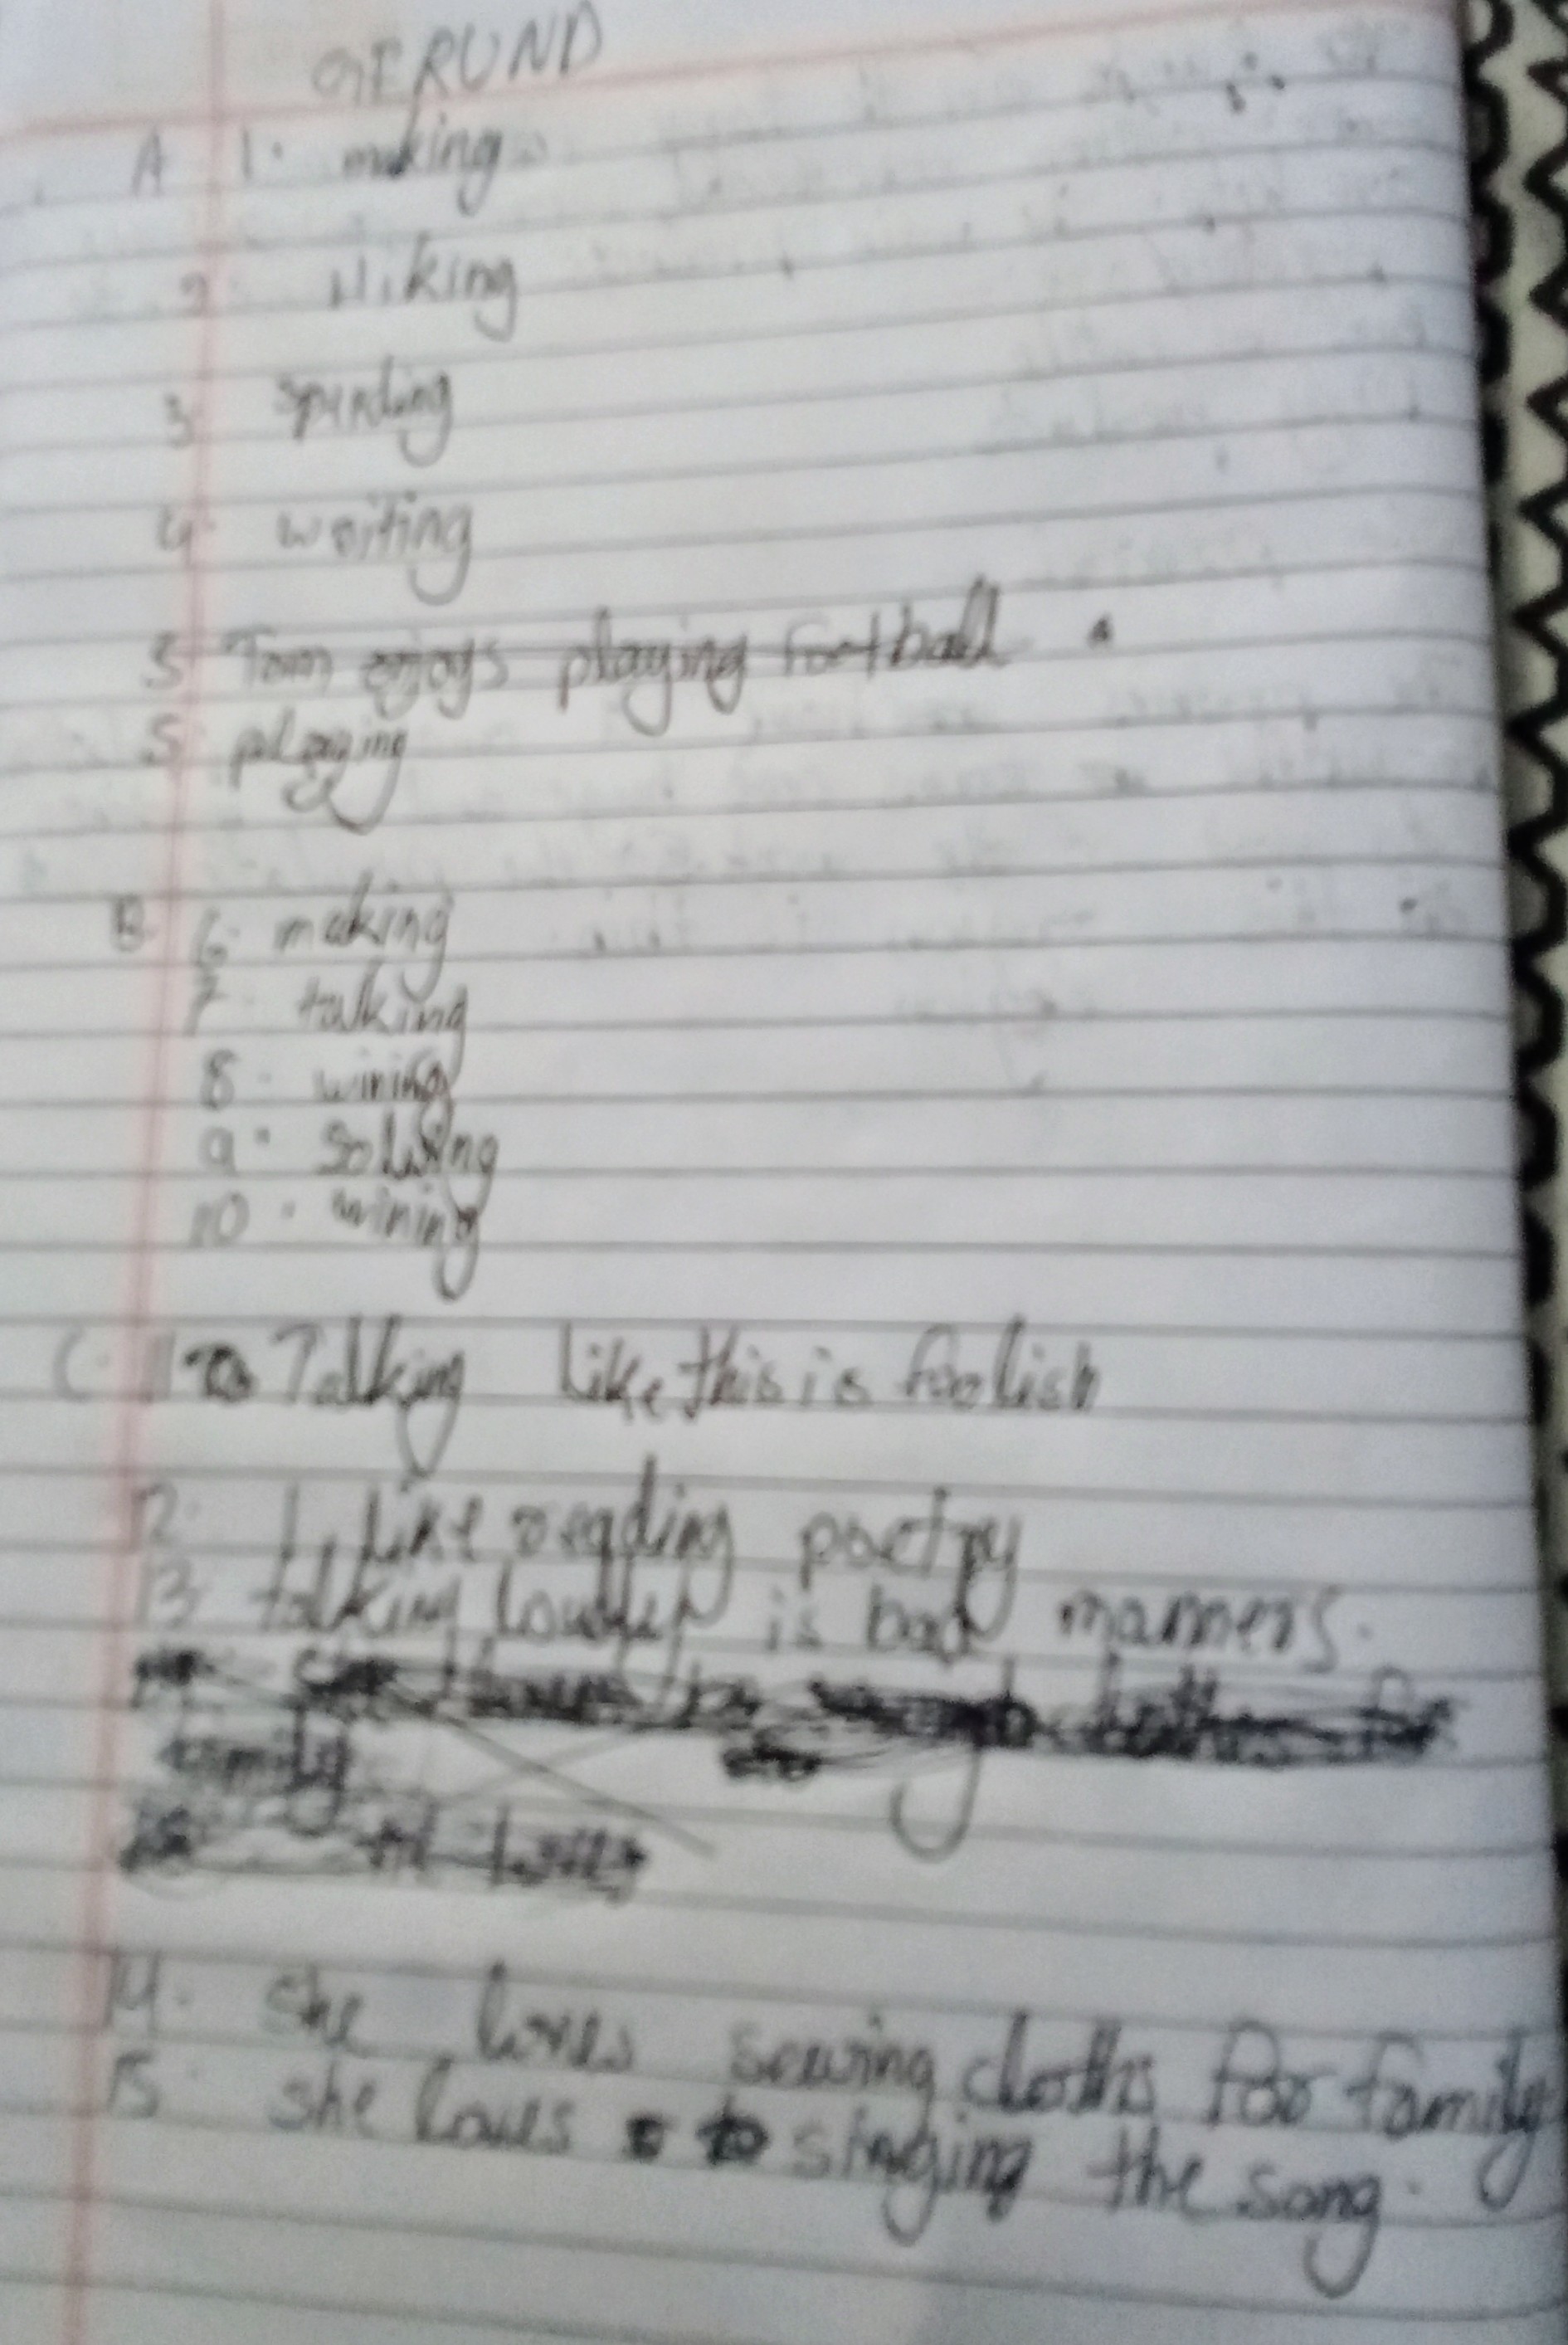 GERUND
A 1. making
2. Hiking
3. spending
4. writing
5 Tom enjoys playing football
5. playing
B. 6. making
7. talking
8. wining
9. Solving
10. wining
C. 11 Talking Like this is foolish
12. I Like reading poetry
13 talking loudly is bad manners.
family
14. She loves sewing cloths for family
15. She loves to singing the song.